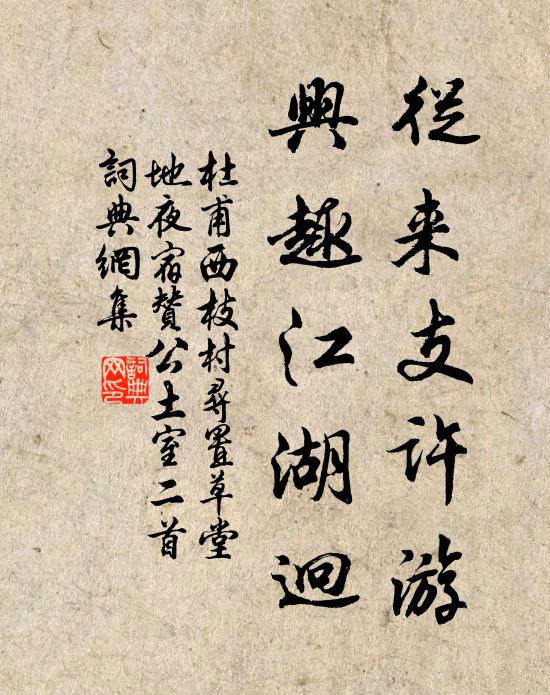 從来支许游
興趣江湖迥
杜甫西枝村尋置草堂
地夜宿贊公土室二首
詞典網集
詞典
网印